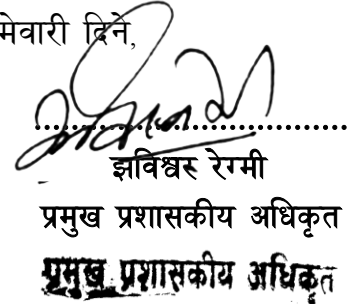 मेवारी दिने,
झविश्वर रेग्मी
प्रमुख प्रशासकीय अधिकृत
प्रमुख प्रशासकीय अधिकृत